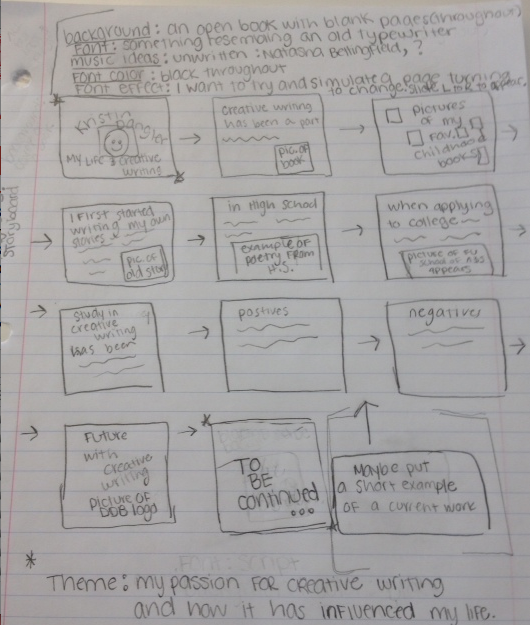 background: an open book with blank pages (throughout)
Font: something resembling an old typewriter
music ideas: unwritten: Natasha Bettingfield, ?
Font color: black throughout
Font effect: I want to try and simulate a page turning
to change slide
Storyboard
Kristin
MY LIFE & creative
writing
creative writing
has been a part
pic of
book
pictures
of my
Fav.
childhood
books
I First started
writing my own
stories
pic of
old story
in High School
example of
poetry From
H.S.
when applying
to college
picture of FU
school of A&S
appears
study in
creative
writing
has been
postives
negatives
Future
with
creative
writing
picture of
DDB logo
TO
BE
continued
...
Maybe put
a short example
OF a current work
Font: Script
* Theme: my passion FOR creative writing
and how it has influenced my life.